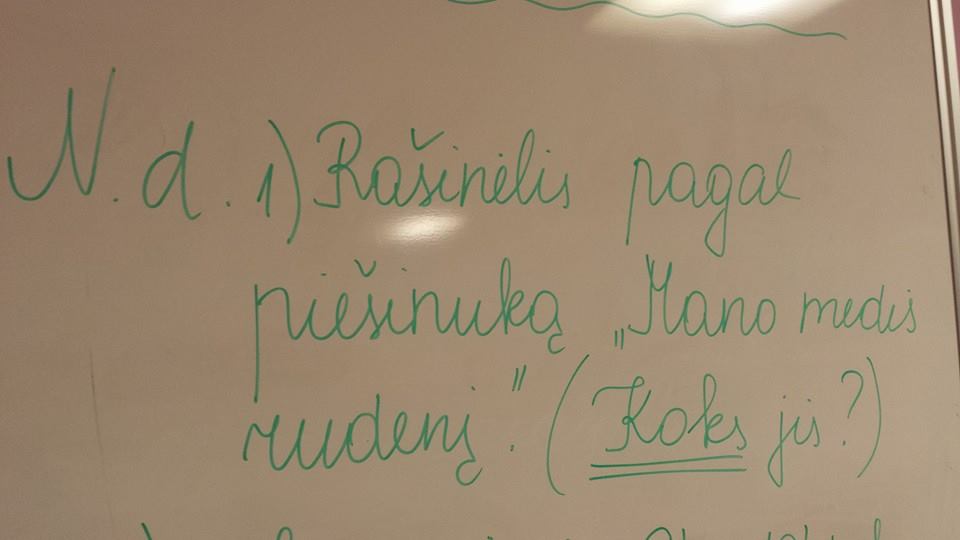 N. d. 1) Rašinėlis pagal
piešinuką „Mano medis
rudenį." (Koks jis?)